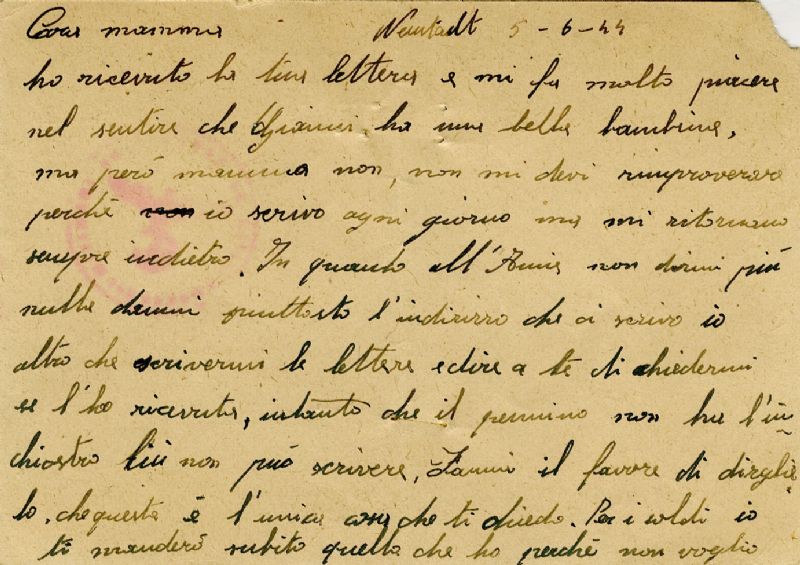 Cara mamma Neustadt 5-6-44
ho ricevuto la tua lettera e mi fa molto piacere
nel sentire che Gianni ha una bella bambina,
ma però mamma non, non mi devi rimproverare
perché io scrivo ogni giorno ma mi ritornano
sempre indietro. In quanto all'Anna non dirmi più
nulla dammi piuttosto l'indirizzo che ci scrivo io
altro che scrivermi le lettere e dire a te di chiedermi
se l'ho ricevuta, intanto che il pennino non ha l'in-
chiostro lui non può scrivere, Fammi il favore di dirglie
lo, che questa è l'unica cosa che ti chiedo. Per i soldi io
ti manderò subito quella che ho perché non voglio